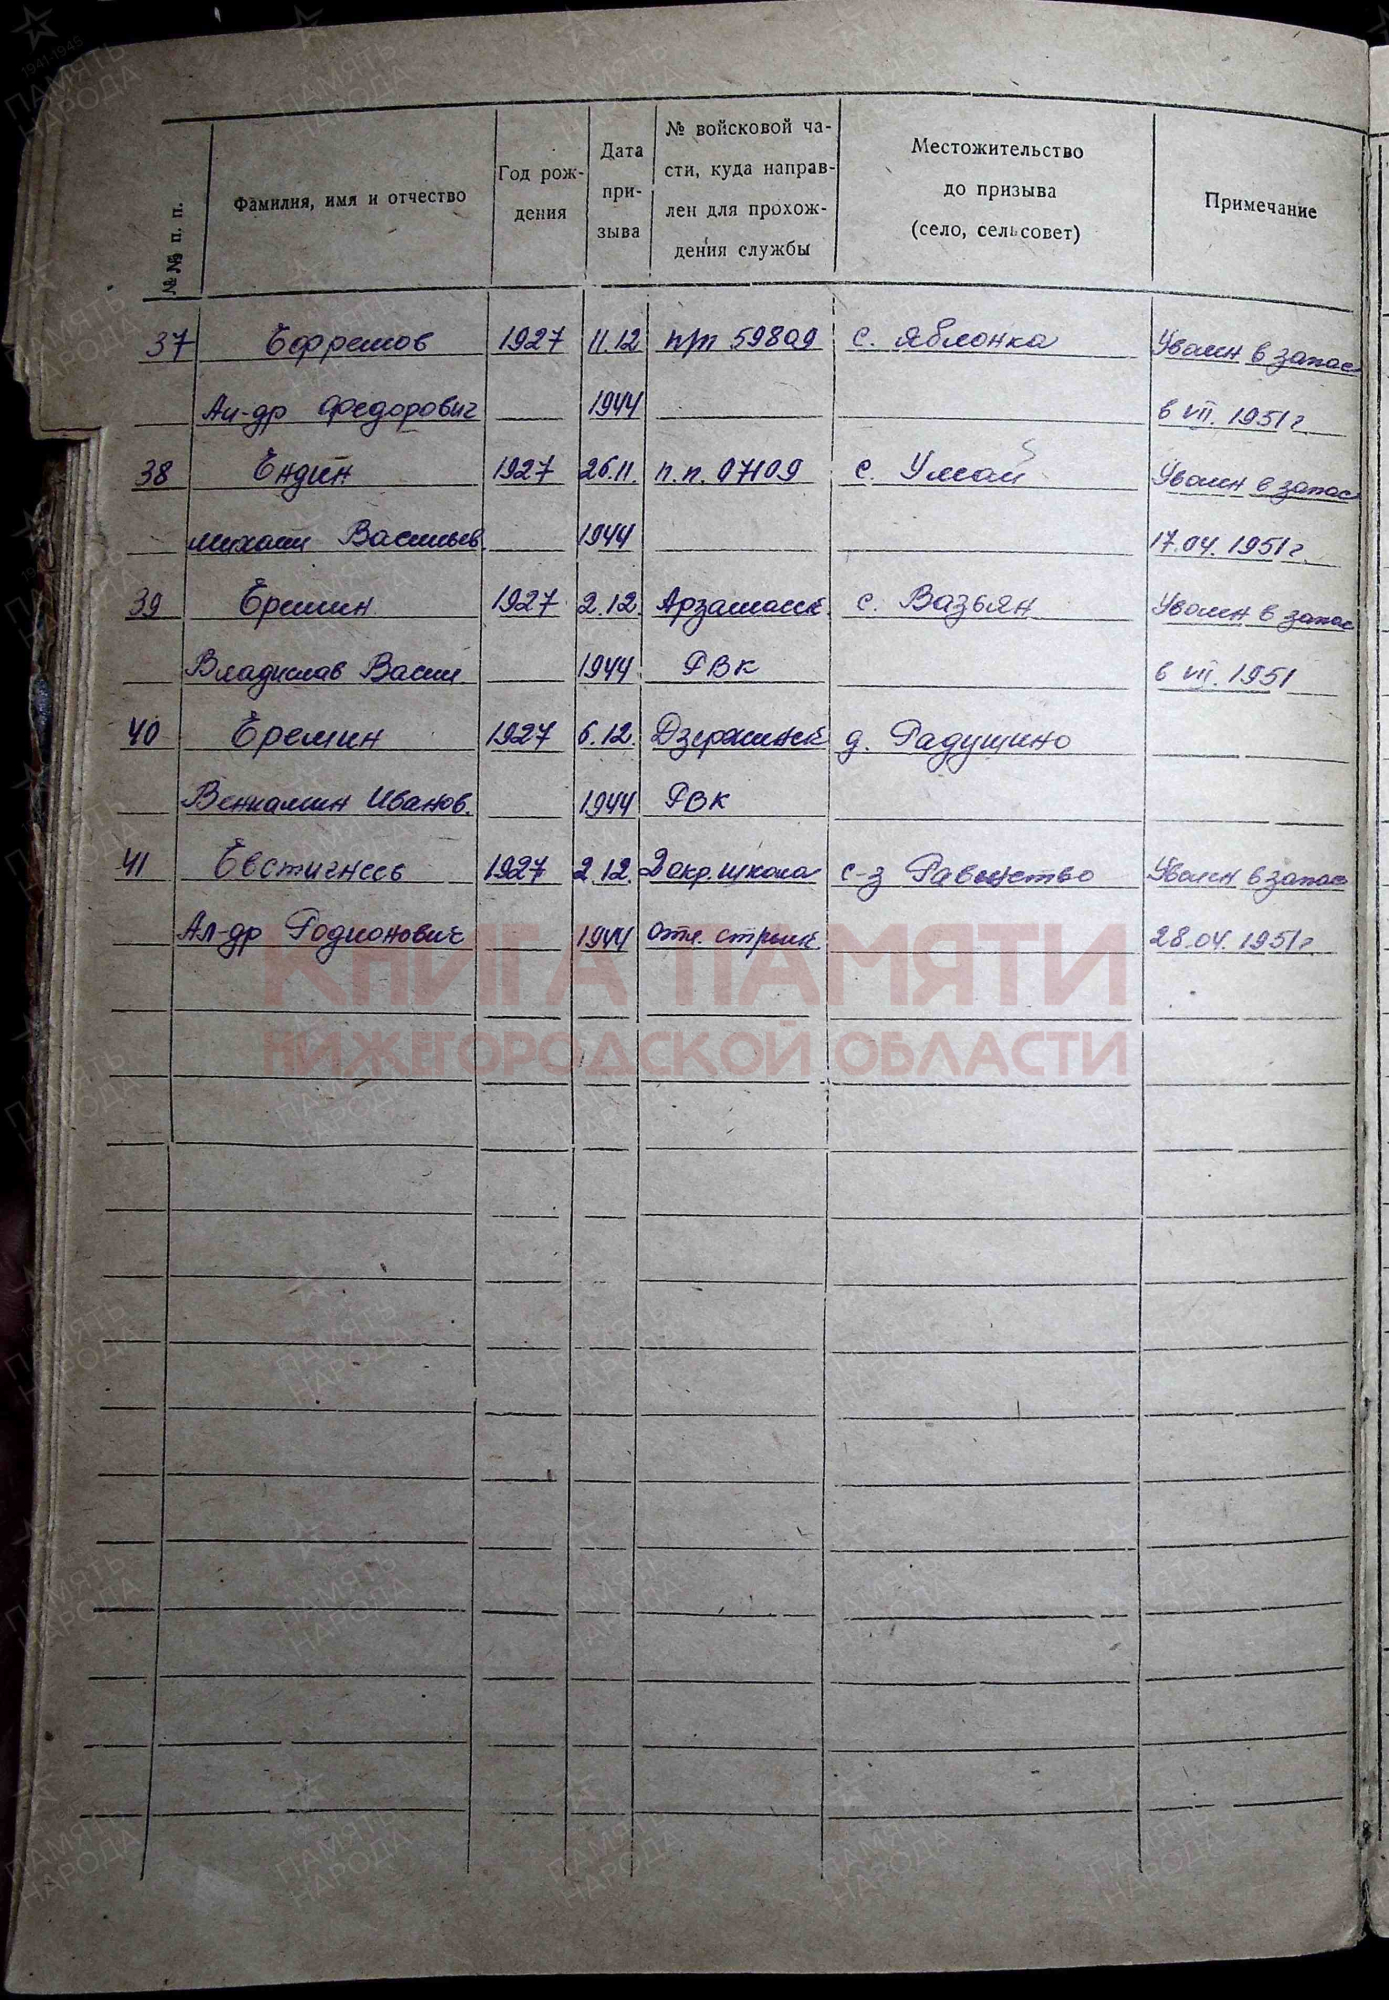 №№ п. п. Фамилия, имя и отчество Год рождения Дата призыва № войсковой части, куда направлен для прохождения службы Местожительство до призыва (село, сельсовет) Примечание
37 Ефремов 1927 11.12 п/п 59809 с. Яблонка Уволен в запас
Ал-др Федорович 1944 в VII. 1951г.
38 Ендин 1927 26.11. п.п. 07109 с. Умай Уволен в запас
Михаил Васильев. 1944 17.04. 1951г.
39 Еремин 1927 2.12. Арзамасск. с. Вазьян Уволен в запас
Владислав Васил. 1944 РВК в VII. 1951
40 Еремин 1927 6.12. Дзержинск д. Радушино
Вениамин Иванов. 1944 РВК
41 Евстигнеев 1927 2.12. 2 окр. школа с-з Равенство Уволен в запас
Ал-др Родионович 1944 отл. стрелк. 28.04. 1951г.
КНИГА ПАМЯТИ
НИЖЕГОРОДСКОЙ ОБЛАСТИ
1941-1945
ПАМЯТЬ
НАРОДА